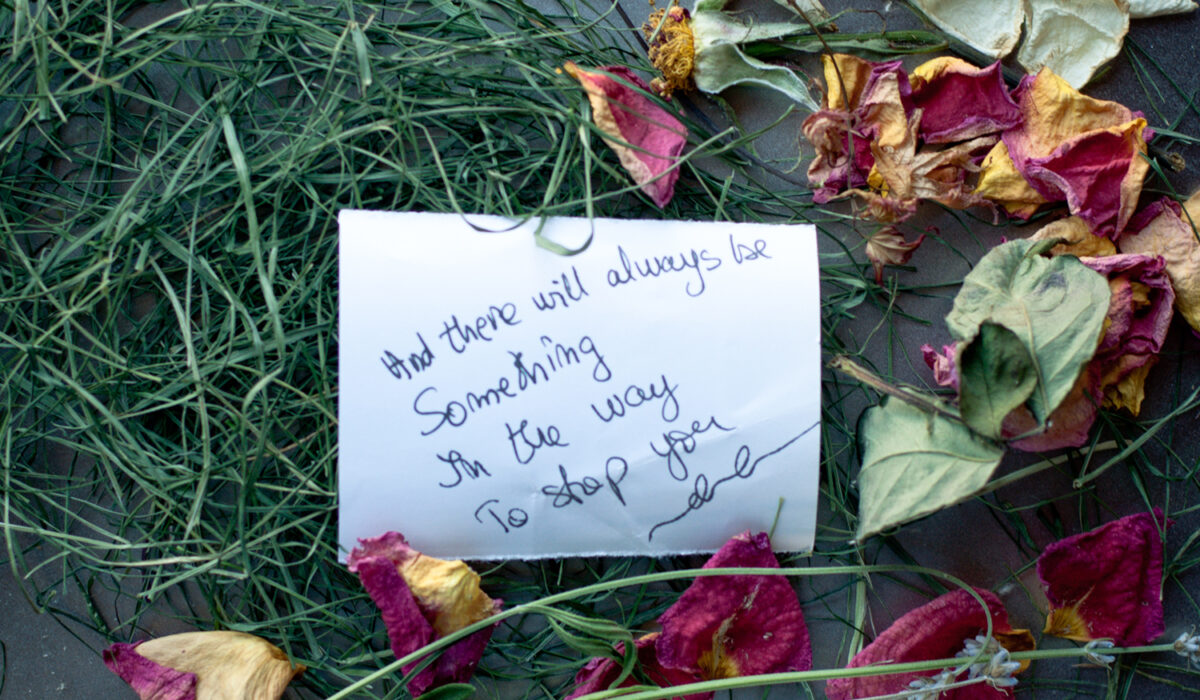 And there will always be
Something
In the way
To stop you